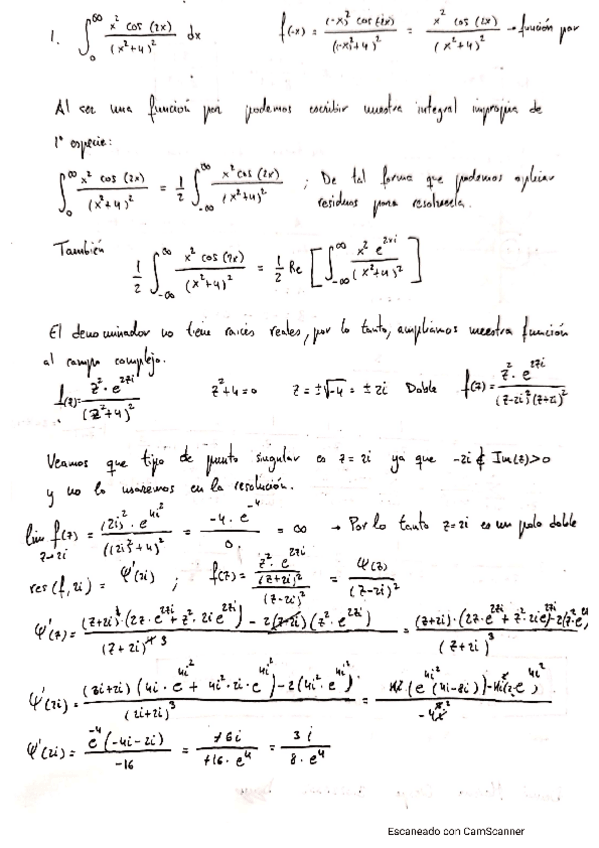 1. ∫₀^∞ x² cos (2x) / (x²+4)² dx    f(-x) = (-x)² cos (2x) / ((-x)²+4)² = x² cos (2x) / (x²+4)² → función par
Al ser una función par podemos escribir nuestra integral impropia de
1ª especie:
∫₀^∞ x² cos (2x) / (x²+4)² = 1/2 ∫₋∞^∞ x² cos (2x) / (x²+4)² ; De tal forma que podamos aplicar
residuos para resolverla.
También
1/2 ∫₋∞^∞ x² cos (2x) / (x²+4)² = 1/2 Re [ ∫₋∞^∞ x² e^(2xi) / (x²+4)² ]
El denominador no tiene raíces reales, por lo tanto, ampliamos nuestra función
al campo complejo.
f(z) = z² · e^(2zi) / (z²+4)²    z²+4=0    z = ±√-4 = ±2i Doble    f(z) = z² · e^(2zi) / (z-2i)²(z+2i)²
Veamos que tipo de punto singular es z = 2i ya que -2i ∉ Im(z)>0
y no lo usaremos en la resolución.
lim z→2i f(z) = (2i)² · e^(4i²) / ((2i)²+4)² = -4 · e^(-4) / 0 = ∞ → Por lo tanto z=2i es un polo doble
res (f, 2i) = φ'(2i) ; f(z) = (z² · e^(2zi) / (z+2i)²) / (z-2i)² = φ(z) / (z-2i)²
φ'(z) =
φ'(2i) =
φ'(2i) = e^(-4) (-4i-2i) / -16 = +6i / +16 · e⁴ = 3i / 8 · e⁴
Escaneado con CamScanner